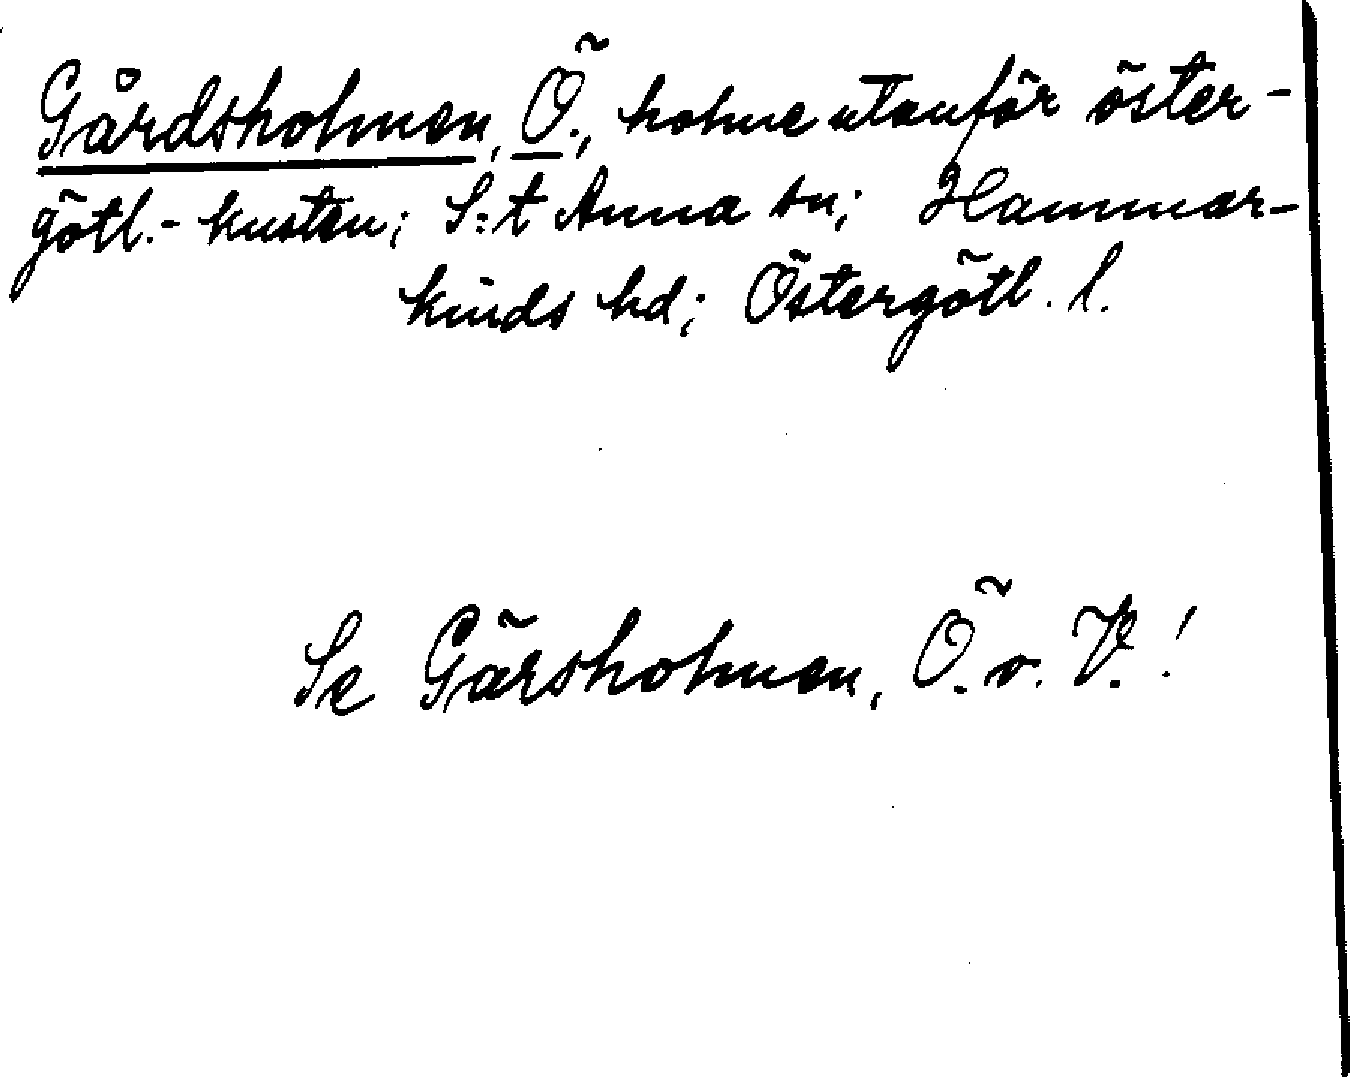 Gårdsholmen, Ö., holme utanför öster-
götl.- kusten; S:t Anna sn; Hammar-
kinds hd; Östergötl. l.
Se Gärsholmen, Ö. o. V.!